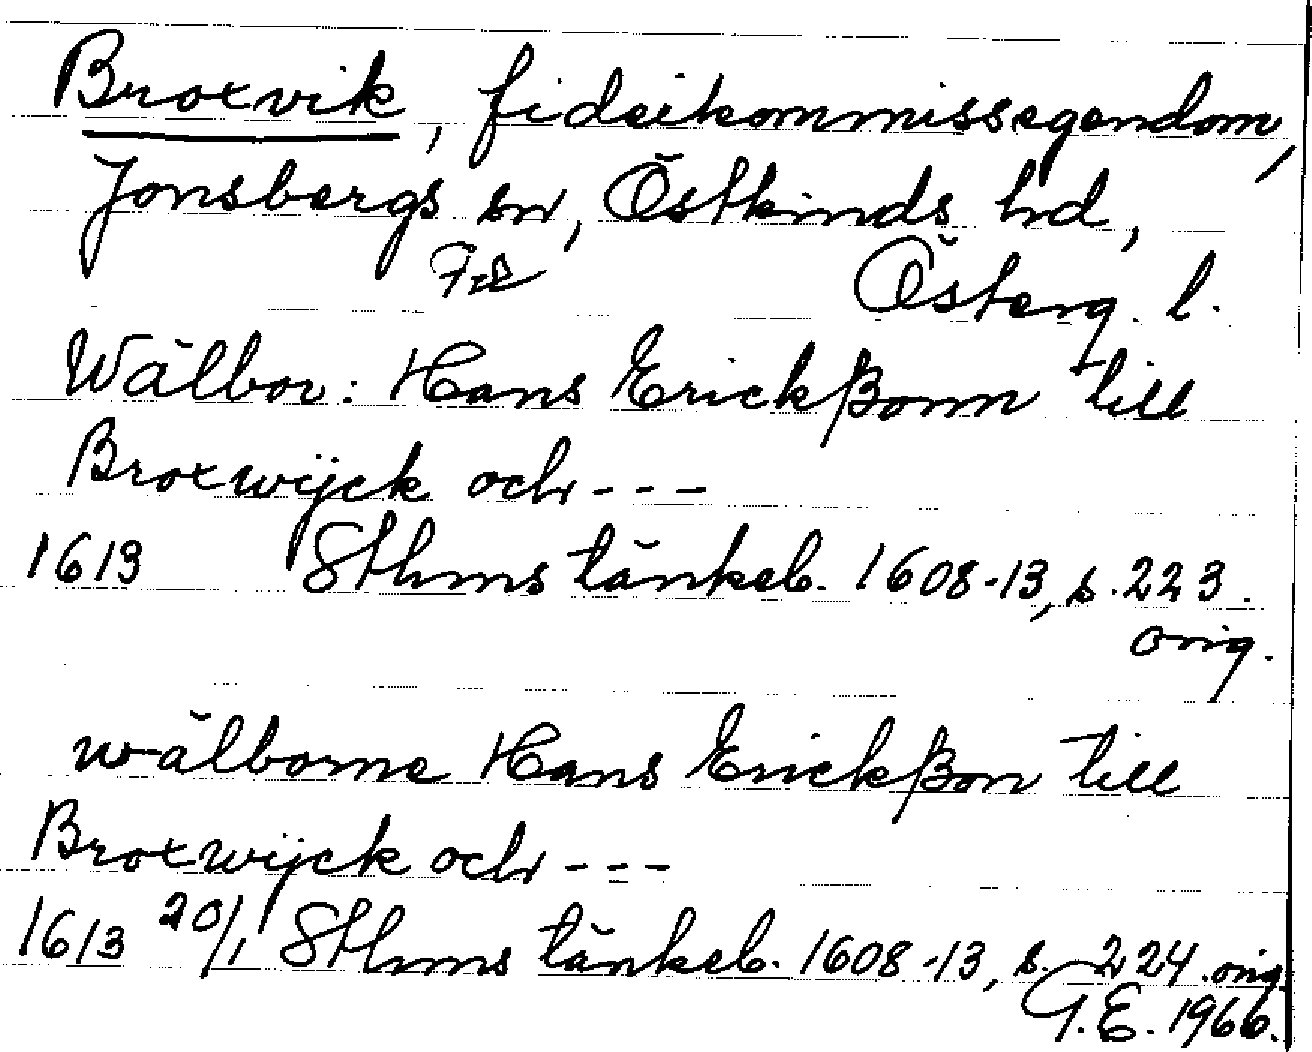 Broxvik, fideikommissegendom,
Jonsbergs sn, Östkinds hd,
Österg. l.
Wälbor: Hans Erickßonn till
Broxwijck och - - -
1613 Sthms tänkeb. 1608-13, s. 223.
orig.
wälborne Hans Erickßon till
Broxwijck och - - -
1613 20/1 Sthms tänkeb. 1608-13, s. 224. orig.
G.E. 1966.